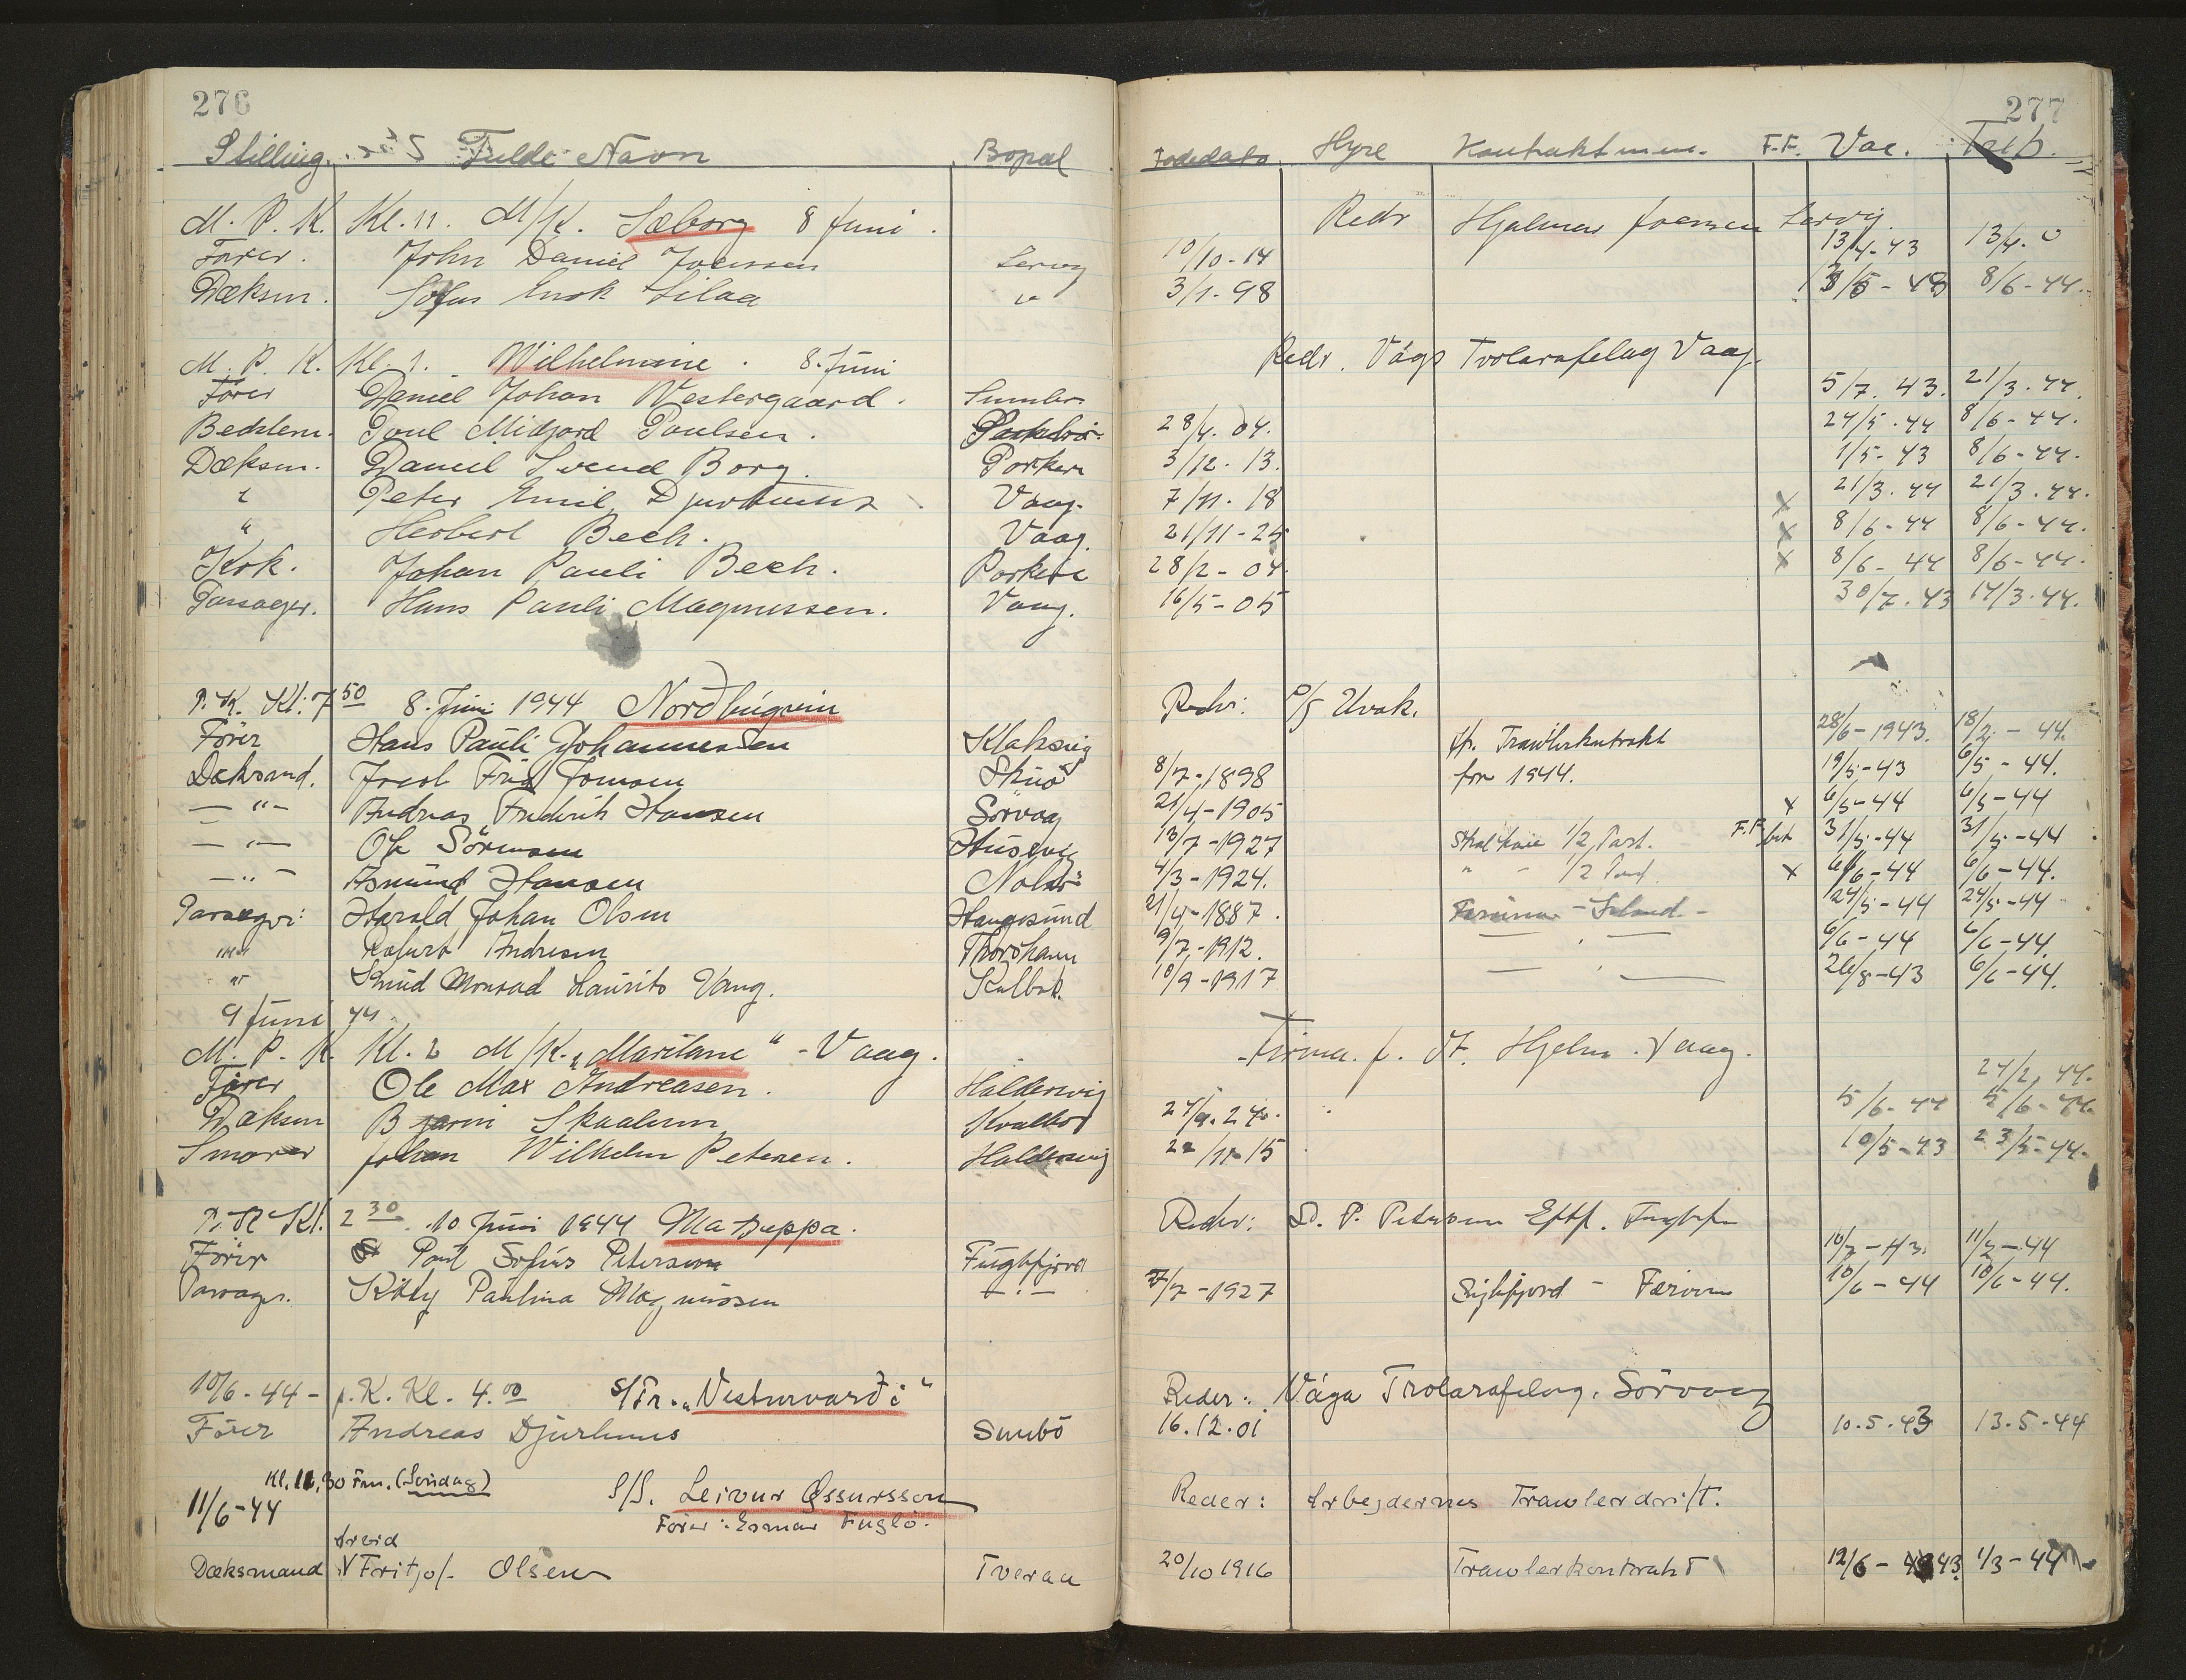 276
277
Stilling. Fulde Navn Bopæl Fødedato Hyre Kontraktmem. F.F. Vac. Trip.
M. P. K. Kl. 11. M/K. Sæborg 8 Juni. Redr Hjalmar Joensen Lervig
Fører. John Daniel Joensen Lervig 10/10-14 13/4-43 13/4. 0
Dæksm. Sofus Enok Lilaa " 3/1-98 8/6-44.
M. P. K. Kl. 1. Wilhelmine. 8. Juni Redr. Vágs Trolarafelag Vaag.
Fører Daniel Johan Vestergaard. Sumbø 5/7. 43. 21/3. 44.
Bedstem. Poul Midjord Poulsen. 28/4. 04. 24/5-44 8/6-44.
Dæksm. Daniel Svend Borg. Porkeri 3/12. 13. 1/5-43 8/6-44.
" Peter Emil Djurhuus Vaag. 7/11. 18 x 21/3. 44 21/3. 44.
" Herbert Bech. Vaag. 21/11-25 x 8/6-44 8/6-44.
Kok. Johan Pauli Bech. Porkeri 28/2-04. x 8/6-44 8/6-44.
Passager. Hans Pauli Magnussen. Vaag. 16/5-05 30/7. 43 14/3. 44.
P. K. Kl. 7 50 8. Juni 1944 Nordbúgvin Redr: P/S Uvak.
Fører Hans Pauli Johannessen Klaksvig fr. Trawlerkontrakt 28/6-1943. 18/2-44.
Dæksmd. Jacob Fríd Joensen Skúø 8/7-1898 for 1944. 19/5-43 6/5-44.
— " — Andreas Frederik Hansen Sørvaag 21/4-1905 x 6/5-44 6/5-44
— " — Ole Sørensen Húsevig 13/7-1927 Skal have 1/2 Part. F.F. 31/5-44 31/5-44
— " — Asmund Hansen Nolsø 4/3-1924. " - 1/2 Part. x 6/6-44 6/6-44.
Passager: Harald Johan Olsen Haugesund 21/4-1887. Færøerne - Island - 24/5-44 24/5-44
" Andresen Thorshavn 9/7-1912. — " — 6/6-44 6/6-44.
" Knud Monrad Laurits Vang. Kalbak. 10/9-1917 — " — 26/8-43 6/6-44.
9 Juni 44.
M. P. K. Kl. 2 M/K. „Maritane" - Vaag. Firma. J. Fr. Hjelm. Vaag.
Fører Ole Max Andreasen. Haldersvig 24/2, 44.
Dæksm Bjarni Skaalum Kvalbø 24/9. 24. 5/6-44 5/6-44.
Smører Johan Wilhelm Petersen. Haldersvig 22/11-15 10/5-43 23/5-44.
P. K. Kl. 2 30 10 Juni 1944 Mazeppa. Redr: S. P. Petersen Eftf. Fuglefj
Fører Poul Sofús Petersen Fuglefjord 10/7-43. 11/2-44
Passager. Kitty Paulina Magnússen — " — 7/7-1927 Siglufjord - Færøerne 10/6-44 10/6-44.
10/6-44- p. K. Kl. 4.00 S/Tr. „Vesturvarði" Reder: Vága Trolarafelag. Sörvaag
Förer Andreas Djurhuus Sumbö 16.12.01 10.5.43 13.5-44
Kl. 11,30 Fm. (Søndag)
11/6-44 S/S. Leivur Øssursson Reder: Arbejdernes Trawlerdrift.
Fører: Esmar Fuglø.
Arvid
Dæksmand √ Fritjof Olsen Tveraa 20/10 1916 Trawlerkontrakt 12/6-43. 1/3-44